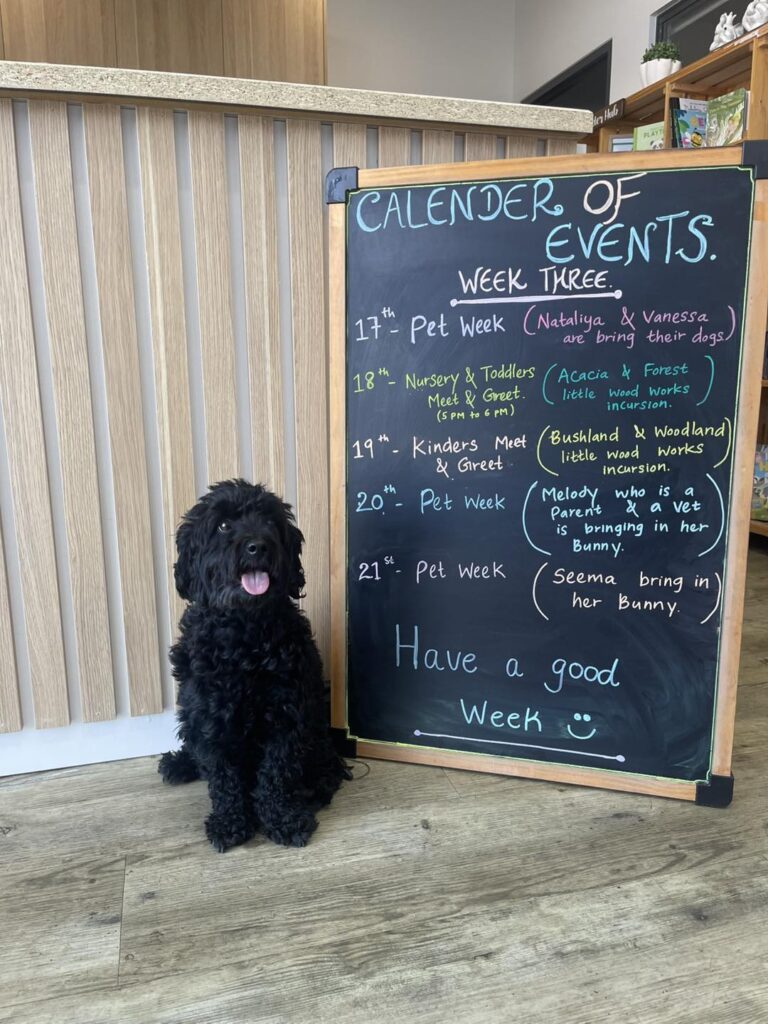 CALENDER OF
EVENTS.
WEEK THREE.
17th - Pet Week (Nataliya & Vanessa
are bring their dogs.)
18th - Nursery & Toddlers
Meet & Greet.
(5 PM to 6 PM)
(Acacia & Forest
little wood works
incursion.)
19th - Kinders Meet
& Greet
(Bushland & Woodland
little wood works
incursion.)
20th - Pet Week
(Melody who is a
Parent & a Vet
is bringing in her
Bunny.)
21st - Pet Week
(Seema bring in
her Bunny.)
Have a good
Week